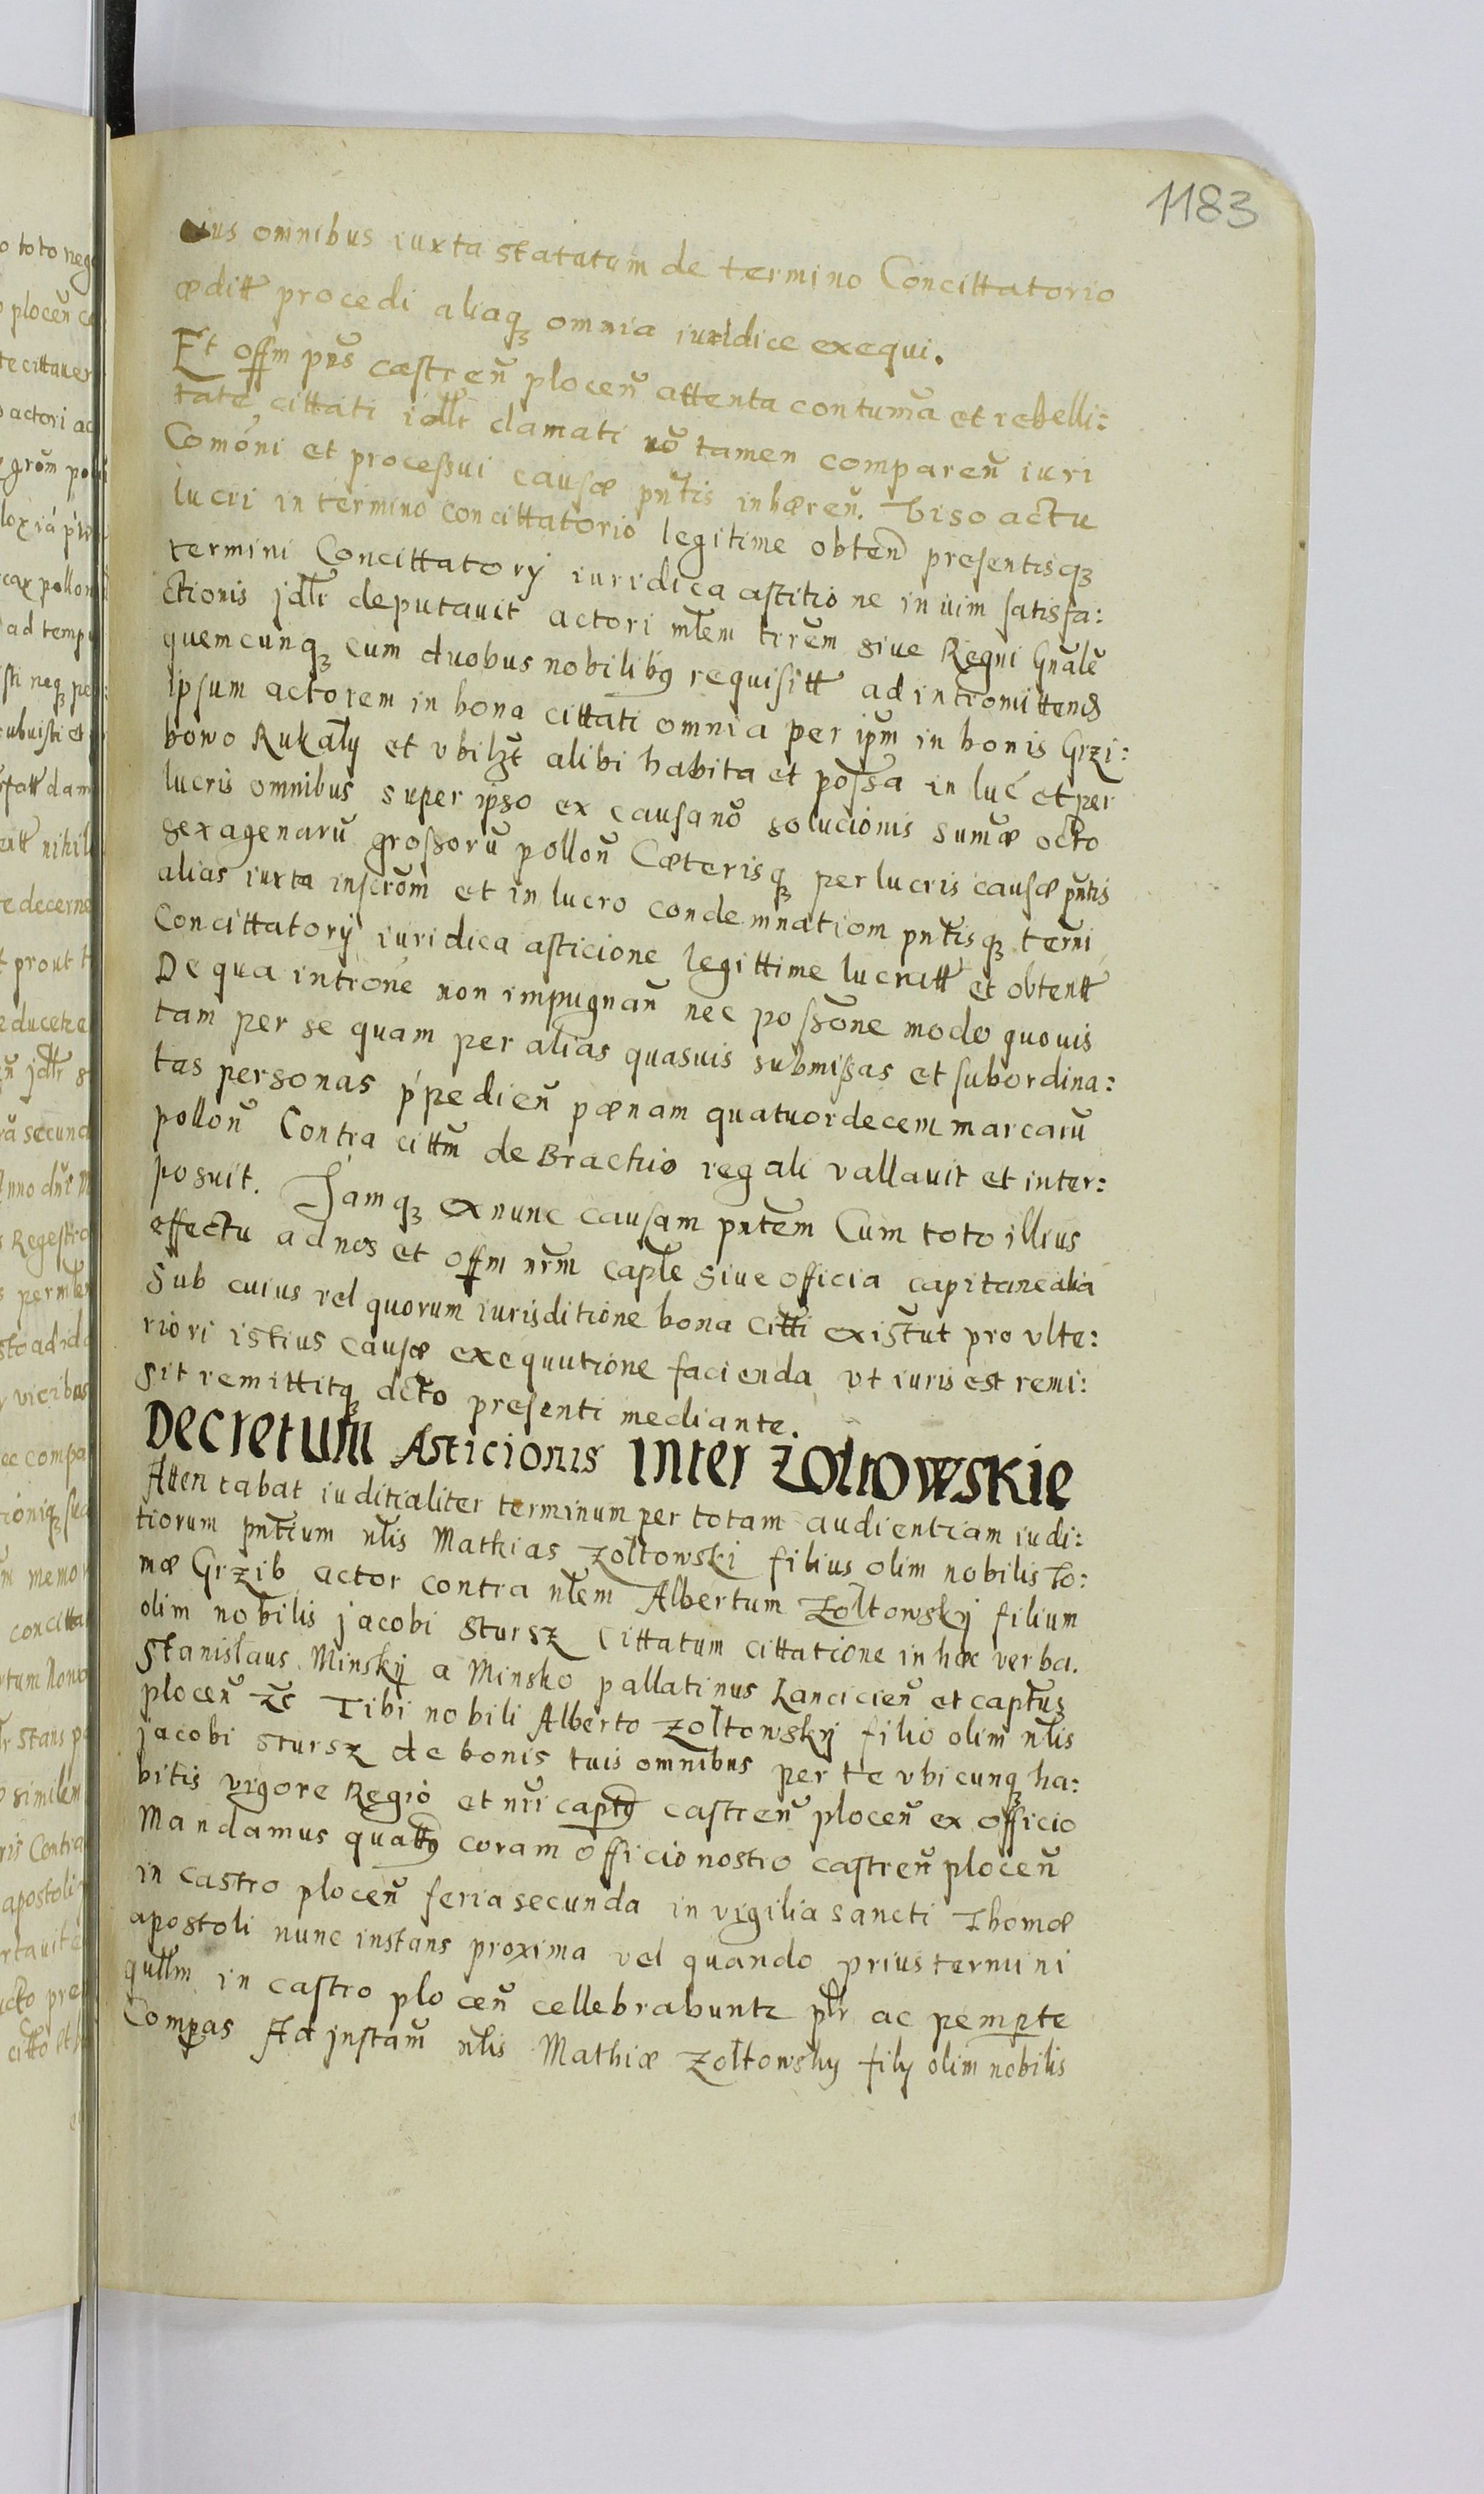 1183
eius omnibus iuxta statutum de termino Concittatorio
æditt procedi aliaqꝫ omnia iuridice exequi.
Et offm pñs castren̄ plocen̄ attenta contuma͞ et rebelli:
tate cittati idllr clamati nō tamen comparen̄ iuri
Comōni et processui causæ pn̄tis inhæren̄. Viso actu
lucri in termino concittatorio legitime obten̄ presentisqꝫ
termini Concittatorÿ iuridica astitione in uim satisfa:
ctionis jdlr deputauit actori mlem trrem siue Regni Gnãle
quemcunqꝫ cum duobus nobilibꝰ requisitt ad intromittend
ipsum actorem in bona cittati omnia per ipm̄ in bonis Grzi:
bowo Rukaly et vbilꝫt alibi habita et possa in luc̄ et per
lucris omnibus super ipso ex causa nō solucionis sumæ octo
sexagenarū grossorū pollon̄ Cæterisqꝫ per lucris causæ pn̄tis
alias iuxta inscrom et in lucro condemnatiom pn̄tisqꝫ termi
Concittatorÿ iuridica asticione legittime lucratt et obtentt
De qua introne non impugnan̄ nec possōne modo quouis
tam per se quam per alias quasuis submissas et subordina:
tas personas p̄pedien̄ pænam quatuordecem marcarū
pollon̄ Contra cittm̄ de Brachio regali vallauit et inter:
posuit. Jamqꝫ ex nunc causam pn̄tem Cum toto illius
effectu ad nos et offm nrm̄ caple siue officia capitanealia
sub cuius vel quorum iurisditione bona citti existut pro vlte:
riori istius causæ exequutione facienda vt iuris est remi:
sit remittitqꝫ dcto presenti mediante.
Decretum Asticionis inter Zołtowskie
Attentabat iuditialiter terminum per totam audientiam iudi:
tiorum pn̄tium nlis Mathias Zołtowski filius olim nobilis To:
mæ Grzib actor contra nlem Albertum Zołtowskÿ filium
olim nobilis jacobi Stursz Cittatum cittatione in hæc verba.
Stanislaus Minskÿ a Minsko pallatinus Lancicien̄ et captus
plocen̄ zc Tibi nobili Alberto Zołtowskÿ filio olim nlis
jacobi Stursz de bonis tuis omnibus per te vbicunqꝫ ha:
bitis vigore Regio et nri captꝰ castren̄ plocen̄ ex officio
Mandamus quattꝰ coram officio nostro castren̄ plocen̄
in castro plocen̄ feria secunda in vigilia sancti Thomæ
apostoli nunc instans proxima vel quando prius termini
qullm in castro plocen̄ cellebrabuntr plr ac pempte
Compas Ad jnstam̄ nlis Mathiæ Zołtowsky filÿ olim nobilis